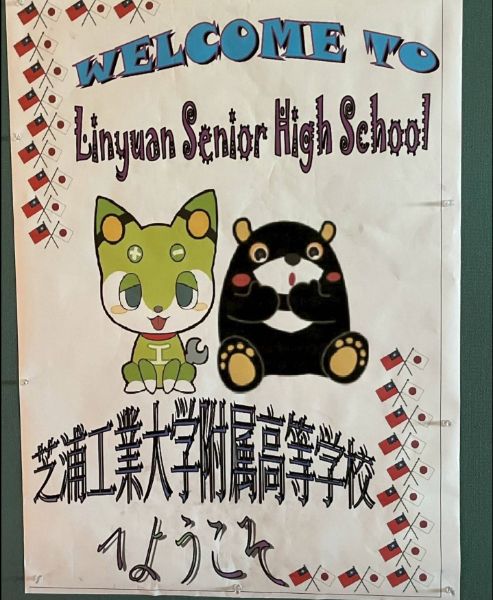 WELCOME TO
Linyuan Senior High School
工
芝浦工業大学附属高等学校
へようこそ